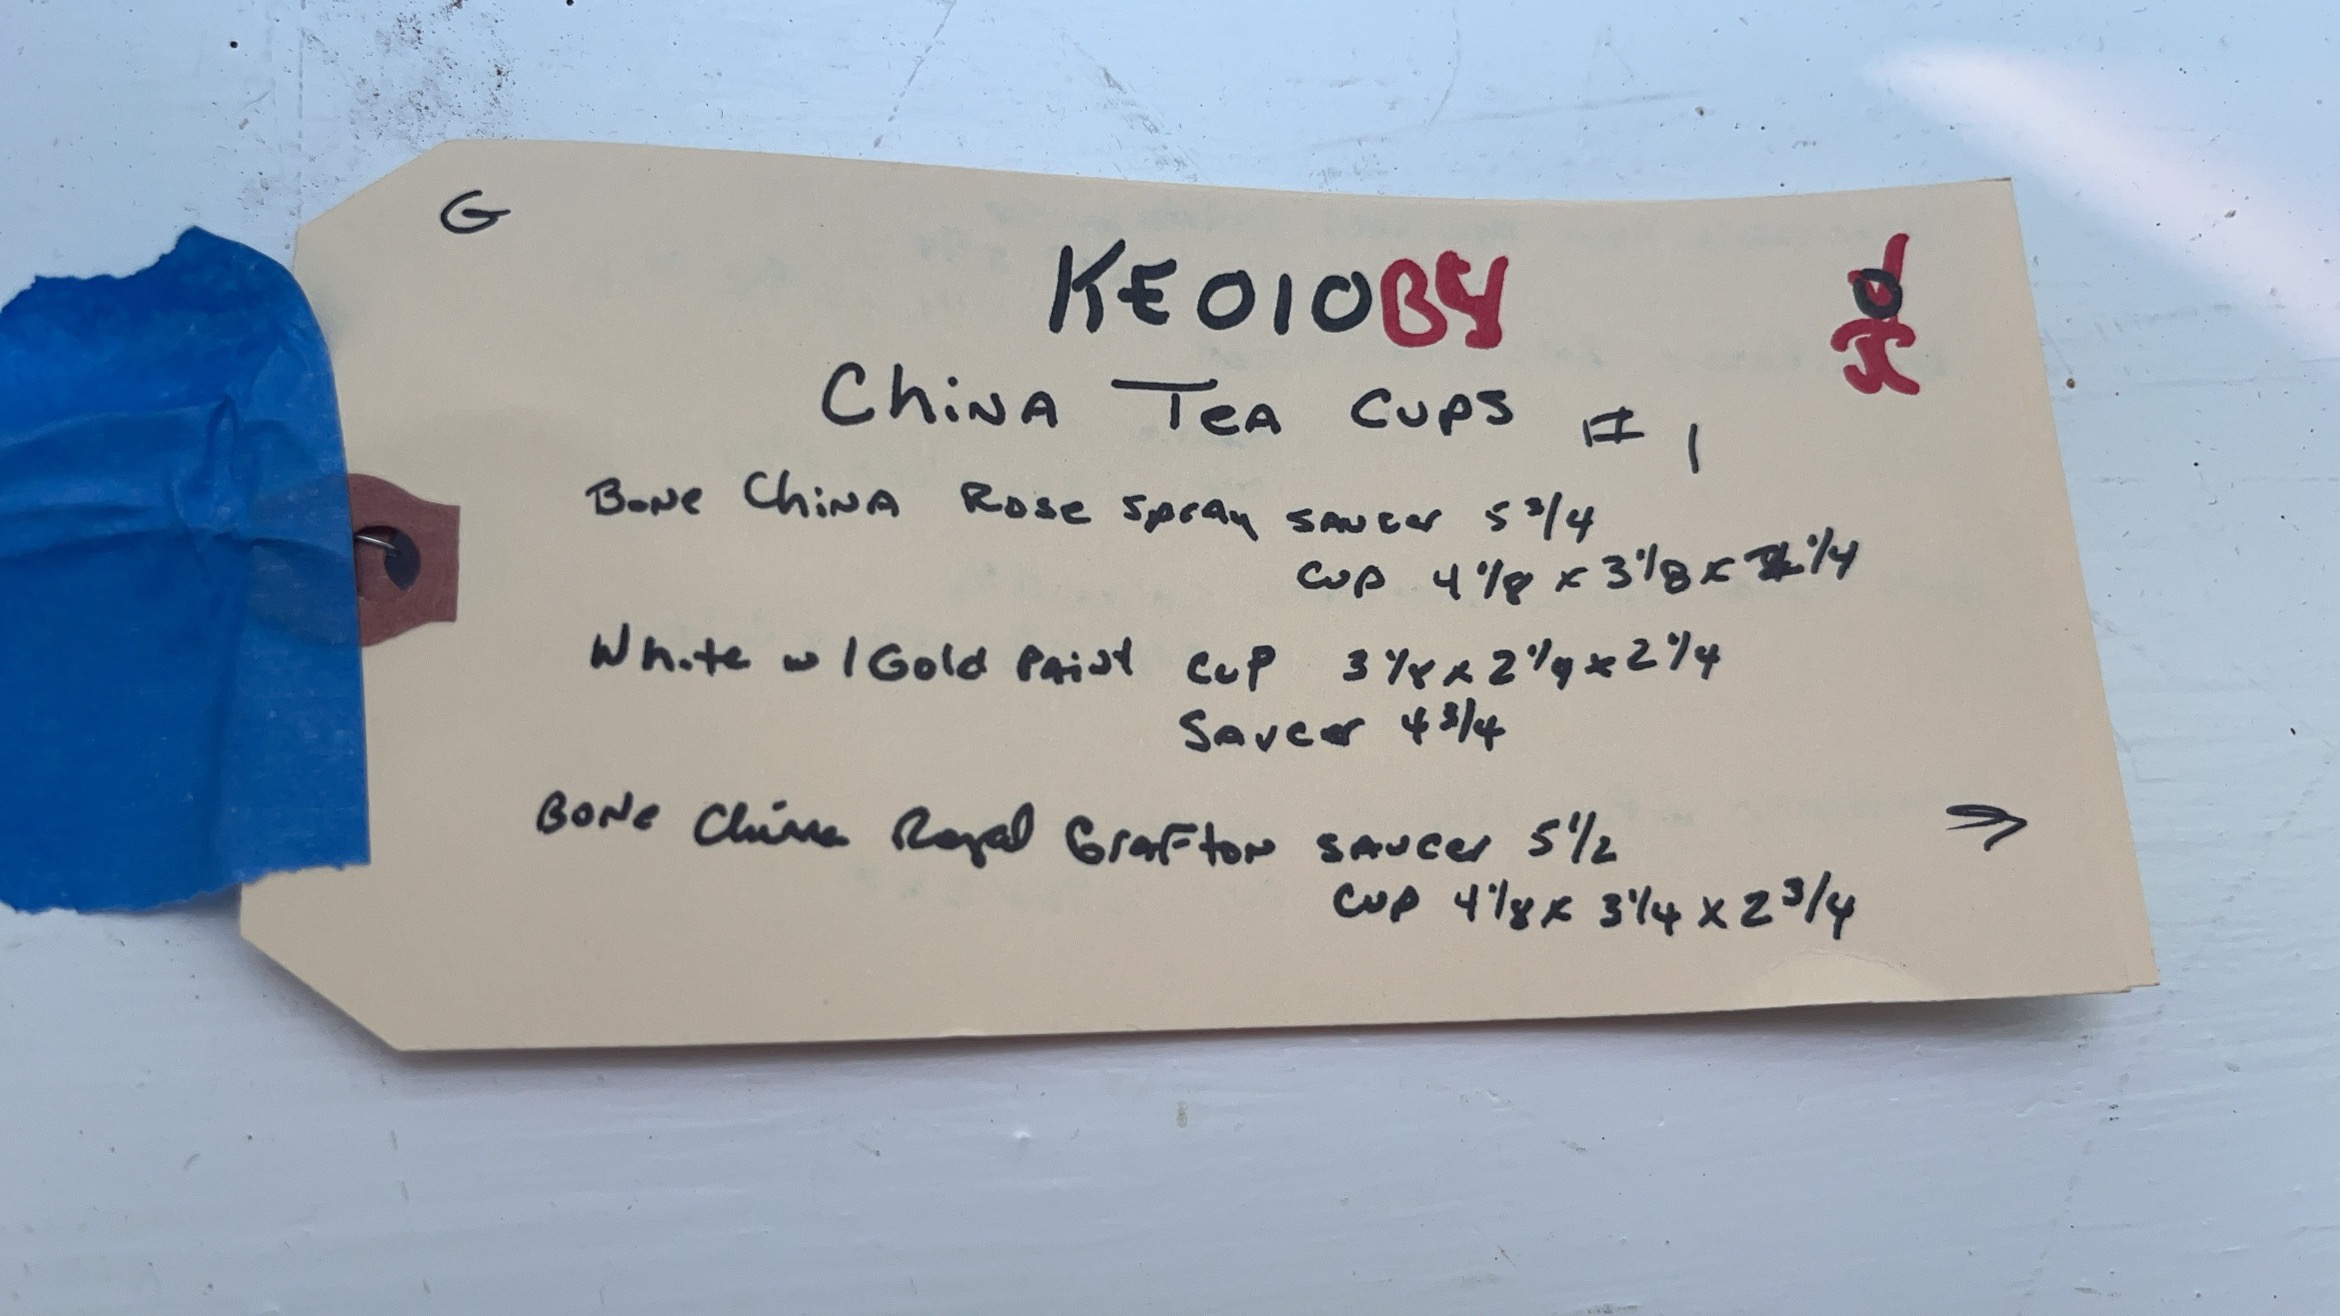 G
KE010B4
China Tea Cups # 1
Bone China Rose Spray saucer 5 3/4
cup 4 1/8 x 3 1/8 x 1/4
White w/ Gold Paint cup 3 1/8 x 2 1/4 x 2 1/4
Saucer 4 3/4
Bone China Royal Grafton saucer 5 1/2
cup 4 1/8 x 3 1/4 x 2 3/4